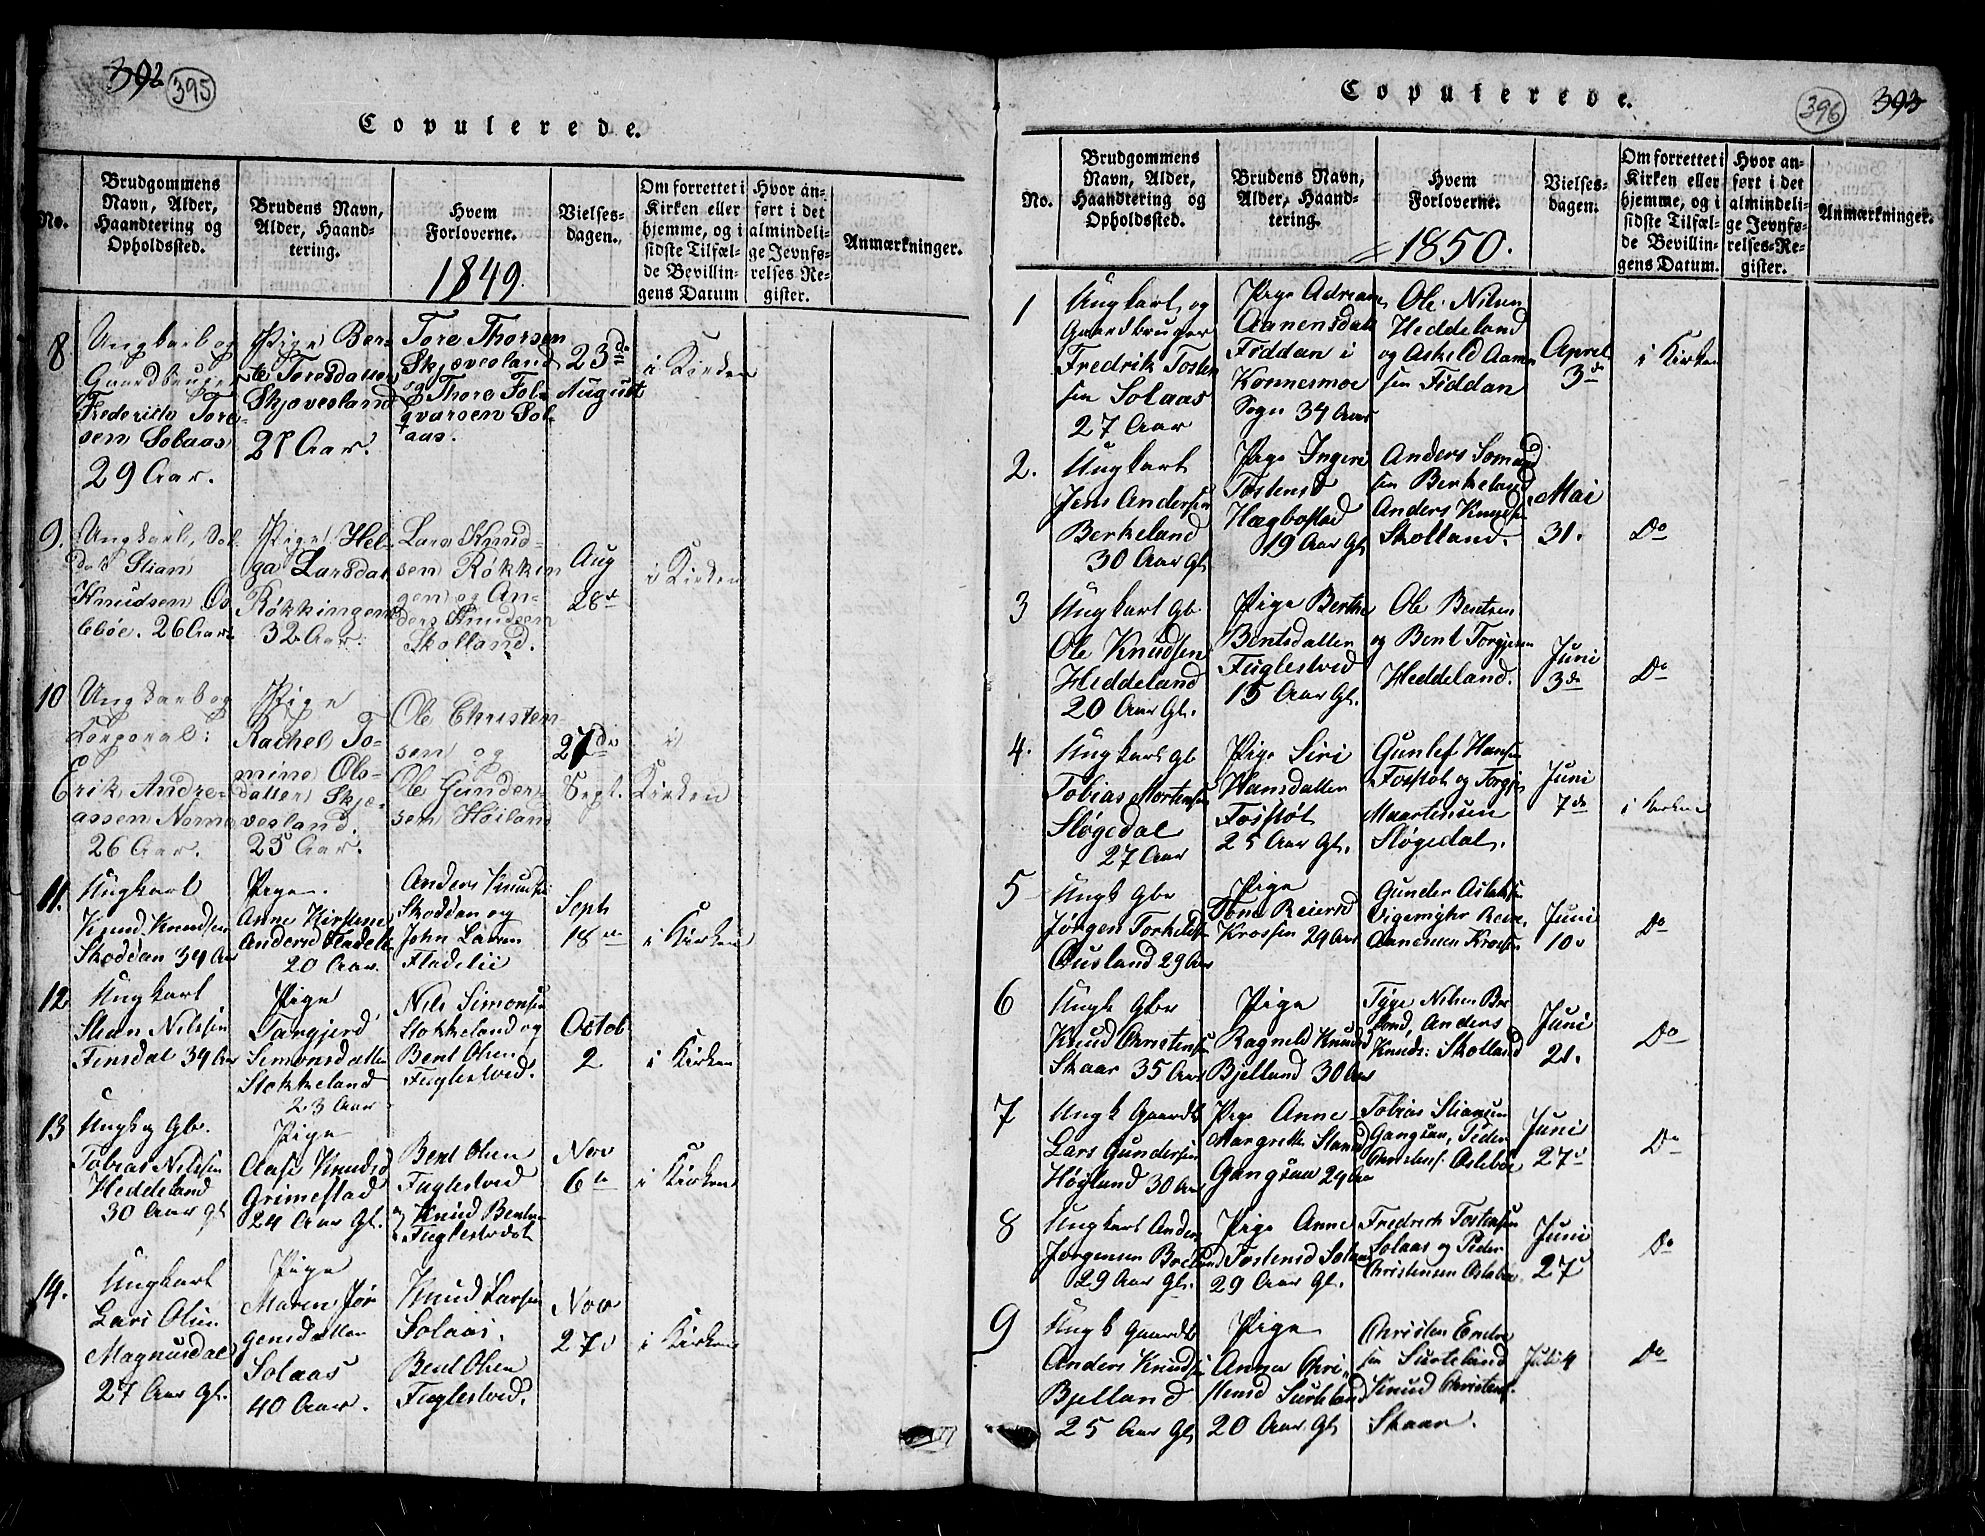 392 395
Copulerede.
No.
Brudgommens
Navn, Alder,
Haandtering og
Opholdssted.
Brudens Navn,
Alder, Haand-
tering.
Hvem
Forloverne.
1849.
Vielses-
dagen.
Om forrettet i
Kirken eller
hjemme, og i
sidste Tilfæl-
de Bevillin-
gens Datum
Hvor an-
ført i det
almindeli-
ge Jevnfø-
relses Re-
gister.
Anmærkninger.
8
Ungkarl og
Gaardbruger
Frederich Tore-
sen Solaas
29 Aar.
Pige Ben-
te Toresdatter
Skjævesland
21 Aar.
Tore Thorsen
Skjævesland
og Thore Fol-
qvarsen Sol-
aas.
23de
August
i Kirken
9.
Ungkarl, Sol-
dat Stian
Knudsen Os-
leböe. 26 Aar
Pige Hel-
ga Larsdat
Røkkingen
32 Aar.
Lars Knud-
sen Røkkin
gen og An-
ders Knudsen
Skolland.
Aug
28de
i Kirken
10
Ungkarl og
Korporal:
Erik Andre-
assen Nome
26 Aar.
Pige
Rachel To-
mine Ols-
datter Skjæ-
vesland.
25 Aar.
Ole Christen-
sen og
Ole Gunder-
sen Höiland
27de
Sept.
i
Kirken
11.
Ungkarl
Knud Knudsen
Skoddan 34 Aar
Pige.
Anne Kirstine
Andersd Fladeli
20 Aar
Anders Knudsen
Skoddan og
John Larsen
Fladelii
Septb
18de
i Kirken
12
Ungkarl
Stian Nilsen
Finsdal 34 Aar
Pige
Targjerd
Simonsdatter
Stokkeland
23 Aar
Nils Simonsen
Stokkeland og
Bent Olsen
Fuglestved.
Octob
2
i Kirken
13
Ungk og Gbr.
Tobias Nilssen
Heddeland
30 Aar Gl
Pige
Aase Knudsd
Grimestad
24 Aar Gl.
Bent Olsen
Fuglestved
og Knud Bentsen
Fuglestvedt
Nov
6te
i Kirken
14.
Ungkarl
Lars Olsen
Magnusdal
27 Aar Gl.
Pige
Maren Jør
gensdatter
Solaas
40 Aar.
Knud Larsen
Solaas.
Bent Olsen
Fuglestved.
Nov
27
i Kirken
Copulerede.
396 393
No.
Brudgommens
Navn, Alder,
Haandtering og
Opholdssted.
Brudens Navn,
Alder, Haand-
tering.
Hvem
Forloverne.
1850.
Vielses-
dagen.
Om forrettet i
Kirken eller
hjemme, og i
sidste Tilfæl-
de Bevillin-
gens Datum.
Hvor an-
ført i det
almindeli-
ge Jevnfø-
relses-Re-
gister.
Anmærkninger.
1
Ungkarl og
Gaardbruger
Fredrik Tosten
sen Solaas
27 Aar
Pige Adreane
Aanensdatt
Fiddan i
Konnesmoe
Sogn 34 Aar
Ole Nilsen
Heddeland
og Askeld Aanen
sen Fiddan
Aprel
3de
i Kirken
2.
Ungkarl
Jens Andersen
Berkeland
30 Aar Gl
Pige Ingeri
Tostensd
Hægbostad
19 Aar Gl
Anders Somund
sen Berkeland
Anders Knudsen
Skolland.
Mai
31.
Do
3
Ungkarl Gb
Ole Knudsen
Heddeland
20 Aar Gl.
Pige Berthe
Bentsdatter
Fuglestved
15 Aar Gl.
Ole Bentsen
og Bent Torgjusen
Heddeland.
Juni
3de
Do
4.
Ungkarl Gb
Tobias Mortensen
Sløgedal
27 Aar
Pige Siri
Hansdatter
Fosstøl
25 Aar Gl.
Gunlef Hansen
Fosstøl og Torgju
Maartensen
Sløgedal.
Juni
7de
i Kirken
5
Ungk Gbr
Jørgen Torkelsen
Øusland 29 Aar
Pige
Tone Reiersd
Krossen 29 Aar
Gunder Aslaksen
Vigemyhr Reier
Aanensen Krossen
Juni
10
Do
6
Ungk Gbr
Knud Christensen
Skaar 35 Aar
Pige
Ragneld Knudsd
Bjelland 30 Aar
Tyge Nilsen Bre
land, Anders
Knuds: Skolland
Juni
21.
Do
7
Ungk Gaardb
Lars Gundersen
Høyland 30 Aar
Pige Anne
Margrethe Stiansd
Gangsaa 29 Aar
Tobias Stiansen
Gangsaa, Peder
Christens. Oslebøe
Juni
27
Do
8
Ungkarl Anders
Jørgensen Breland
29 Aar Gl.
Pige Anne
Tostensd Solaas
29 Aar Gl.
Fredrich Tostensen
Solaas og Peder
Christensen Oslebøe
Juni
27
Do
9
Ungk Gaardb
Anders Knudsen
Bjelland
25 Aar Gl
Pige
Anna Chri
stensd Surteland
20 Aar Gl
Christen Endre
sen Surteland
Knud Christens.
Skaar.
Juli 4
Do